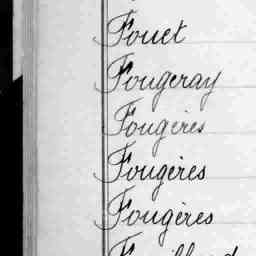 Fouet
Fougeray
Fougères
Fougères
Fougères